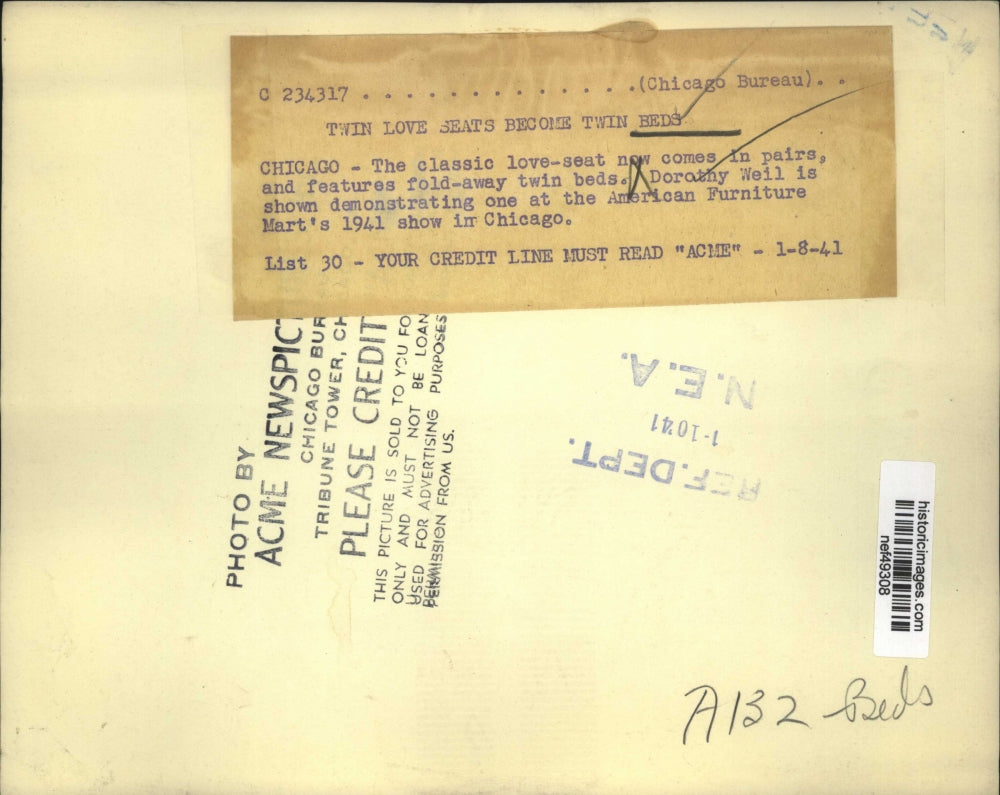 C 234317 . . . . . . . . . . . . . .(Chicago Bureau). .
TWIN LOVE SEATS BECOME TWIN BEDS
CHICAGO - The classic love-seat now comes in pairs,
and features fold-away twin beds. Dorothy Weil is
shown demonstrating one at the American Furniture
Mart's 1941 show in Chicago.
List 30 - YOUR CREDIT LINE MUST READ "ACME" - 1-8-41
PHOTO BY
ACME NEWSPIC
CHICAGO BUR
TRIBUNE TOWER, CH
PLEASE CREDIT
THIS PICTURE IS SOLD TO YOU FO
ONLY AND MUST NOT BE LOAN
USED FOR ADVERTISING PURPOSES
PERMISSION FROM US.
REF. DEPT.
1-1041
N.E.A.
historicimages.com
nef49308
A132 Beds